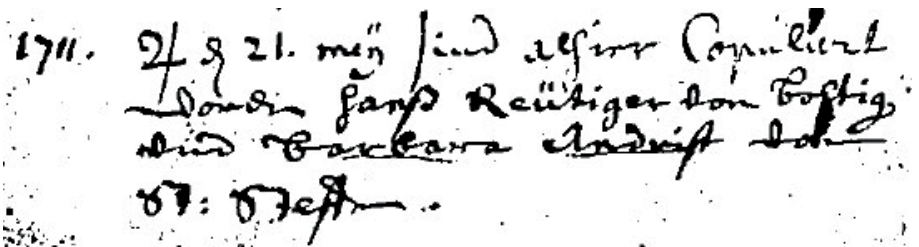 1711. ♃ d 21. meÿ sind alhier Copuliert
worden Hanß Reütiger von Boltig.
und Barbara Andrist von
St: Steffen.